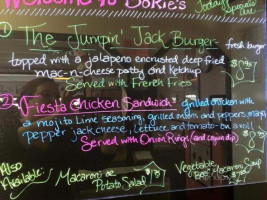 Welcome to Dokies
Today's
Specials
① The Jumpin' Jack Burger
fresh burger
topped with a jalapeno encrusted deep fried
mac-n-cheese patty and ketchup
Served with French Fries
2. Fiesta Chicken Sandwich - grilled chicken with
a mojito Lime seasoning, grilled onions and peppers,
pepper jack cheese, lettuce and tomato - on a roll
Served with Onion Rings (and cajun dip)
Also
Available:
Macaroni or
Potato Salad
Vegetable
Beef Macaroni Soup